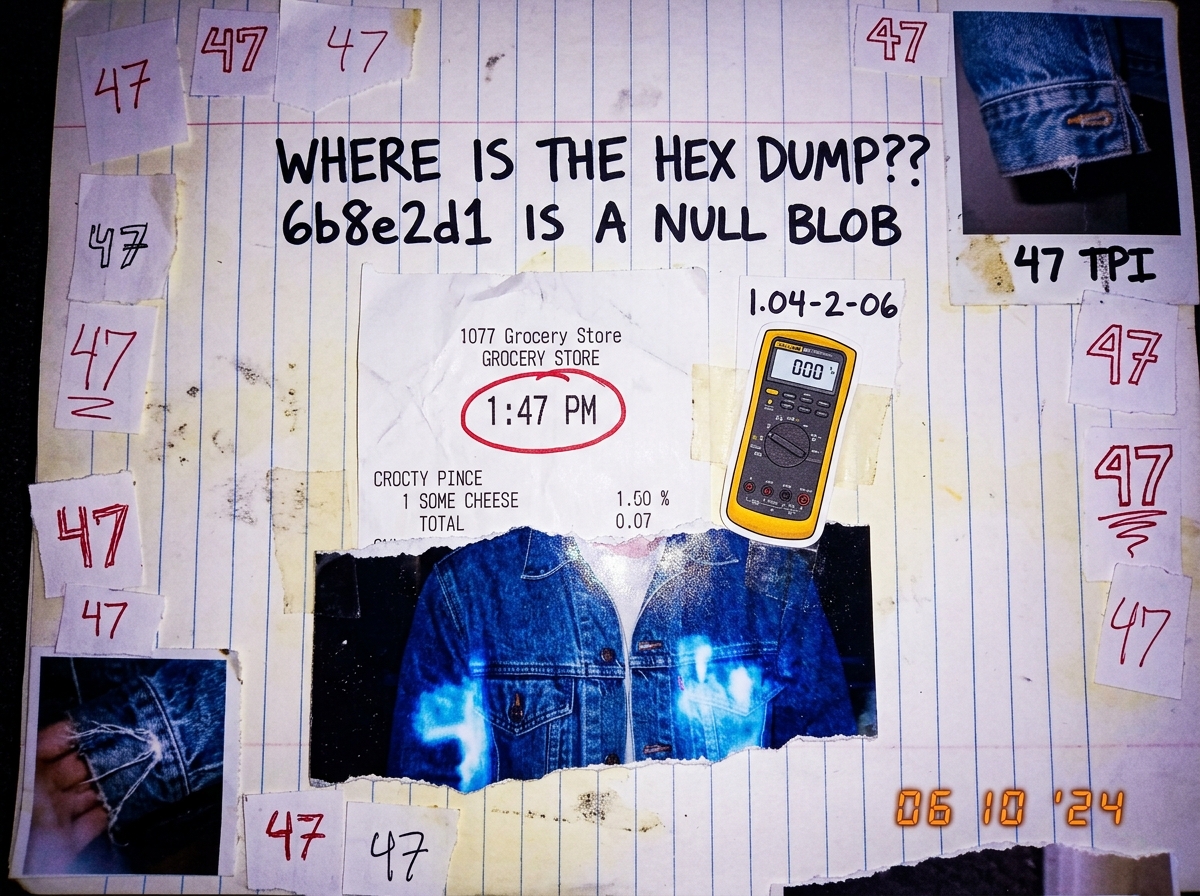 47
47
47
47
WHERE IS THE HEX DUMP??
6b8e2d1 IS A NULL BLOB
47
47 TPI
1.04-2-06
47
1077 Grocery Store
GROCERY STORE
47
000
1:47 PM
47
CROCTY PINCE
1 SOME CHEESE 1.50 %
TOTAL 0.07
47
47
47
47
47
06 10 '24